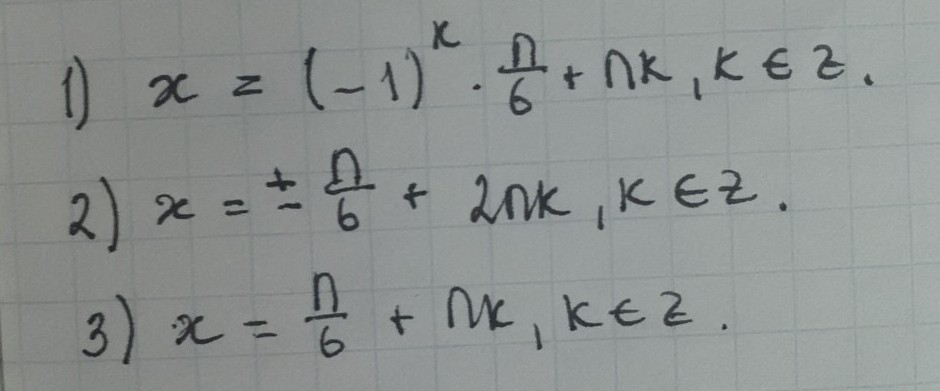 1) x = (-1)^k · π/6 + πk, k ∈ Z.
2) x = ± π/6 + 2πk, k ∈ Z.
3) x = π/6 + πk, k ∈ Z.